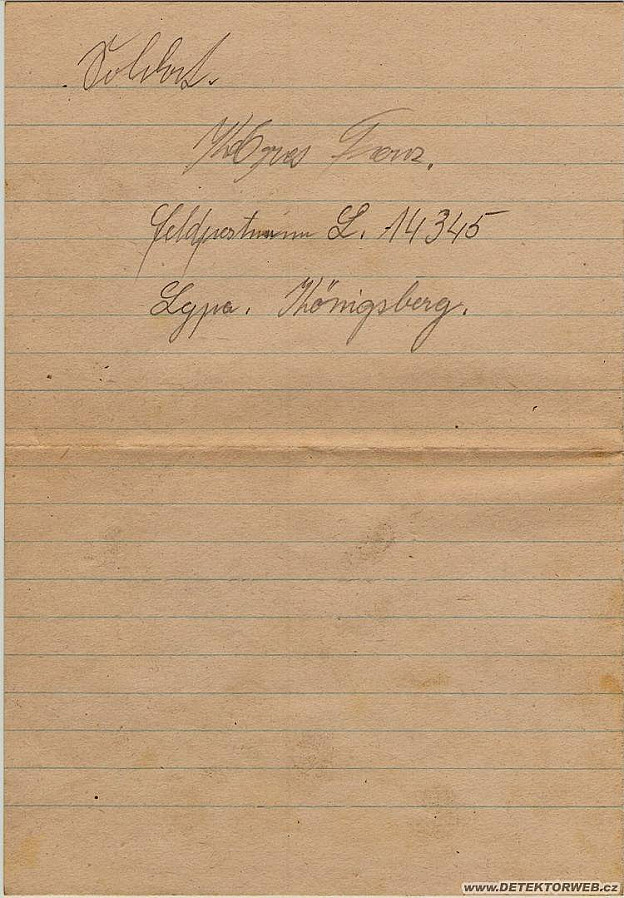 Soldat.
Franz.
Feldpostnum L. 14345
Lgpa. Königsberg.
www.DETEKTORWEB.cz